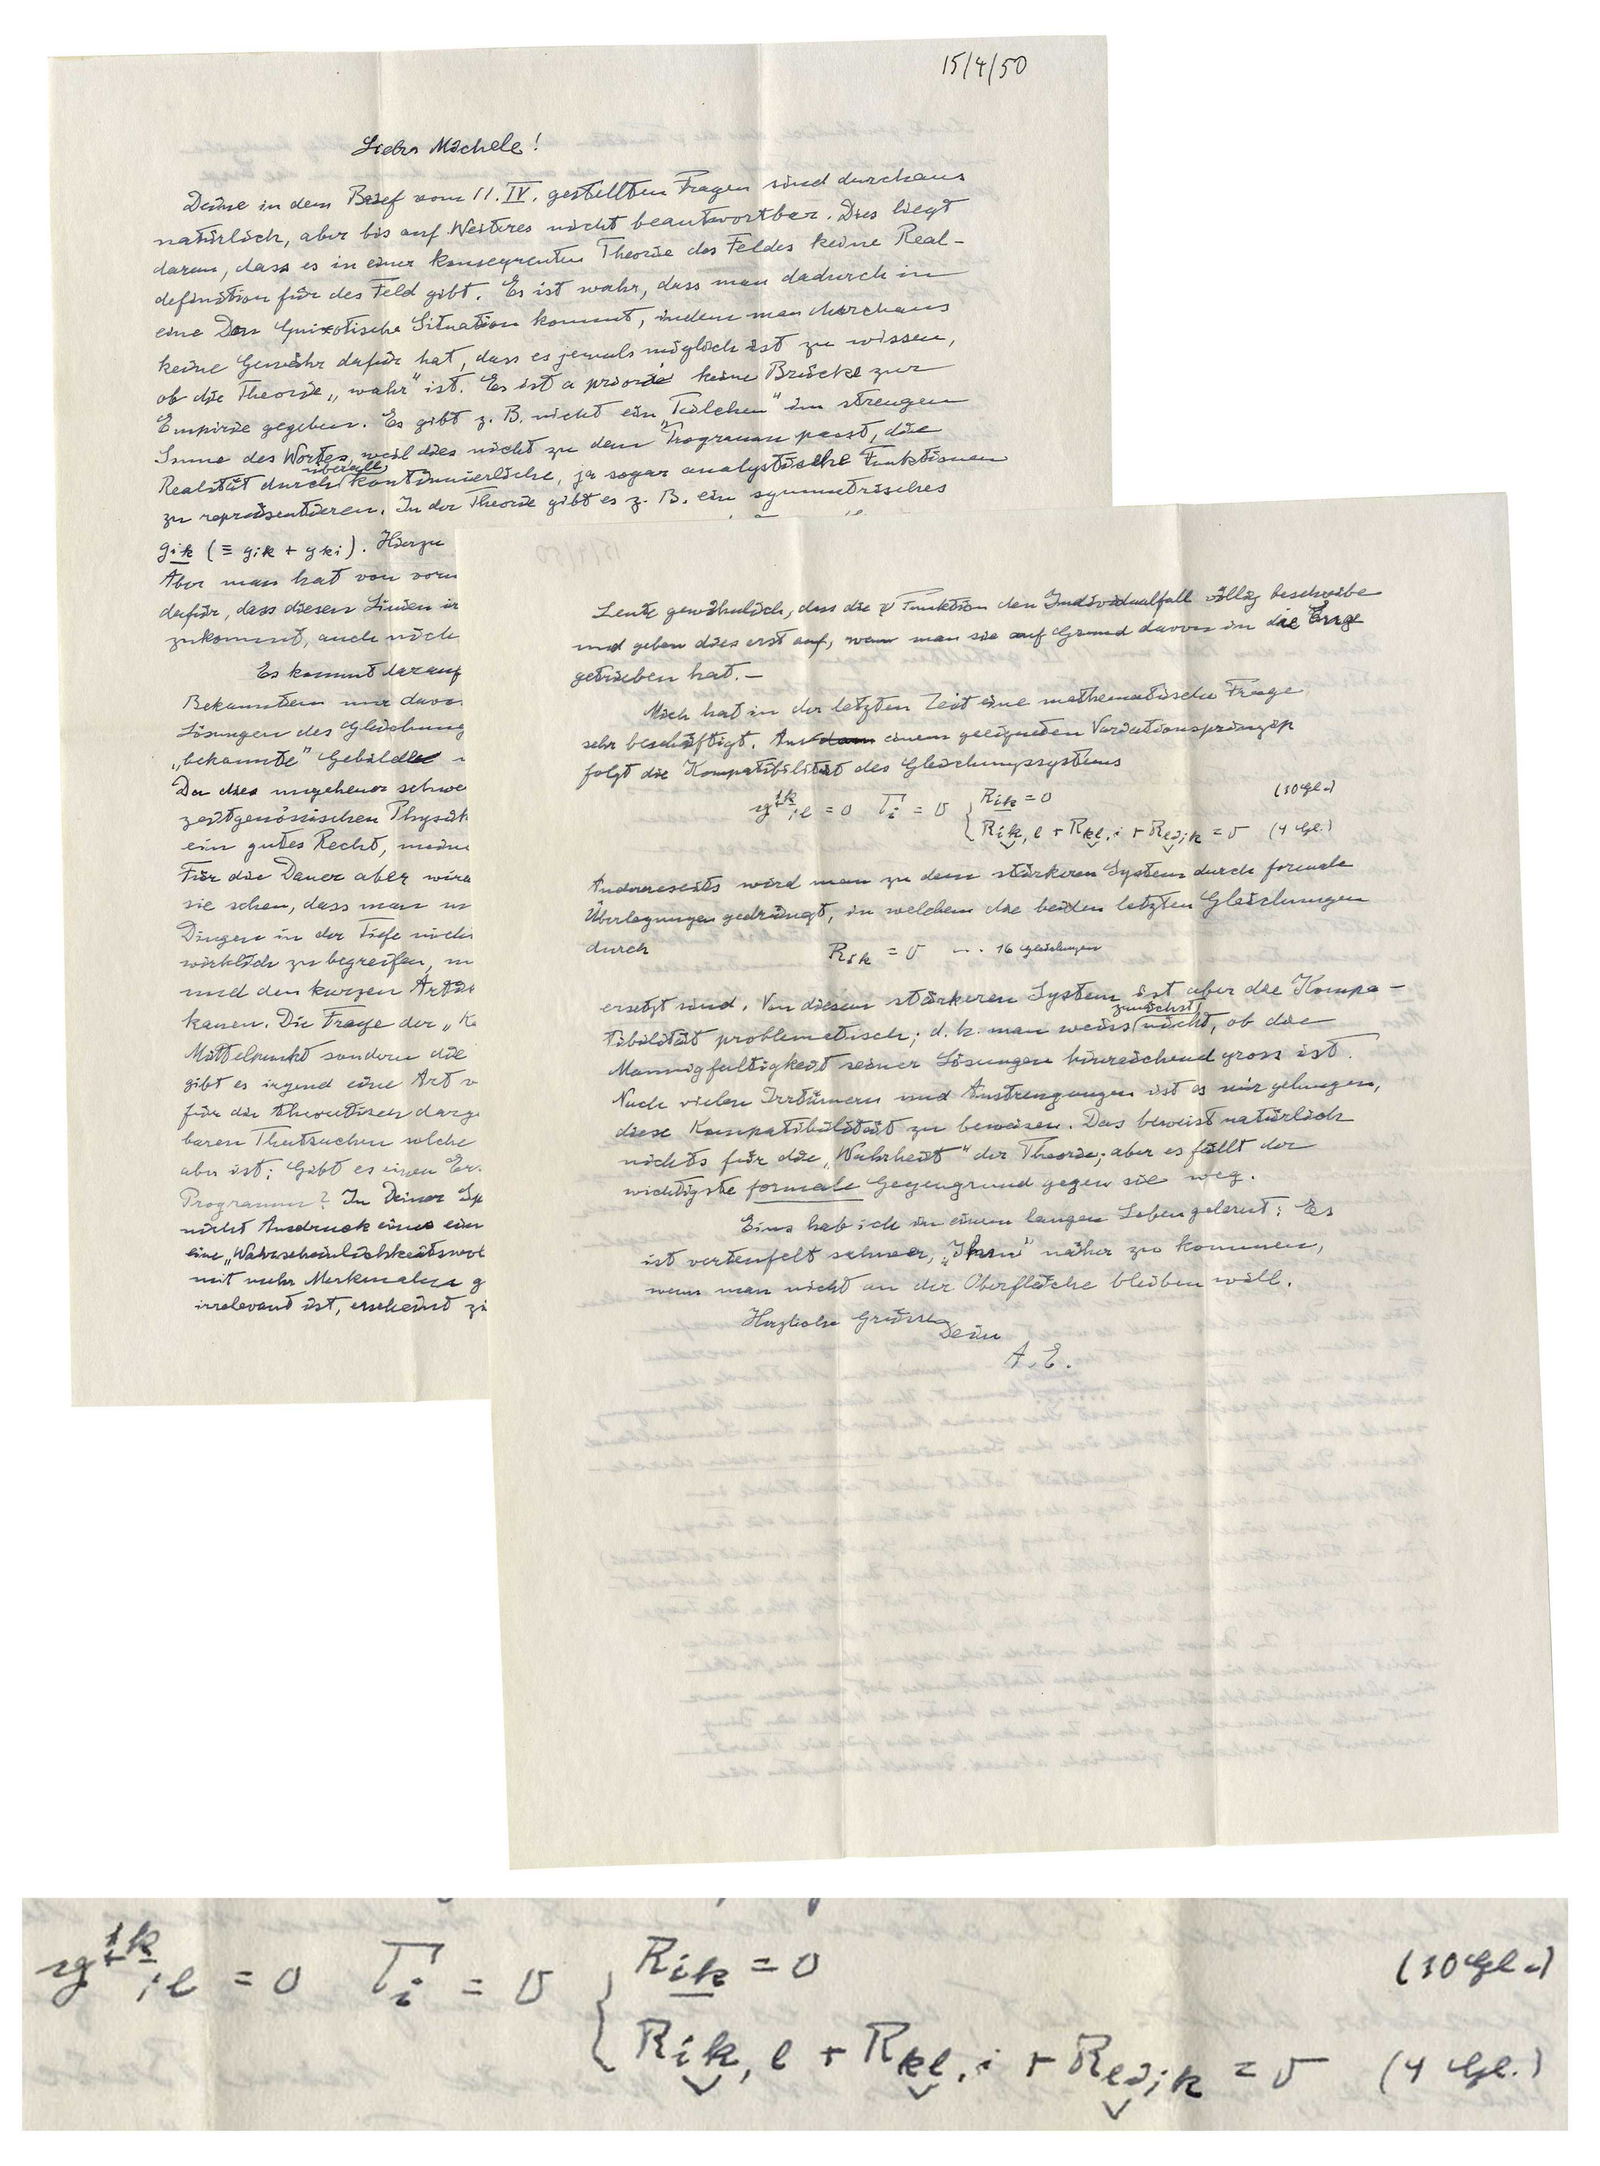 15/4/50
Lieber Michele!
Deine in dem Brief vom 11. IV. gestellten Fragen sind durchaus
natürlich, aber bis auf Weiteres nicht beantwortbar. Dies liegt
daran, dass es in einer konsequenten Theorie des Feldes keine Real-
definition für das Feld gibt. Es ist wahr, dass man dadurch in
eine Don Quixotische Situation kommt, indem man durchaus
keine Gewähr dafür hat, dass es jemals möglich ist zu wissen,
ob die Theorie „wahr" ist. Es ist a priori keine Brücke zur
Empirie gegeben. Es gibt z. B. nicht ein „Teilchen" im strengen
Sinne des Wortes, weil dies nicht zu dem Programm passt, die
Realität durch überall kontinuierliche, ja sogar analytische Funktionen
zu repräsentieren. In der Theorie gibt es z. B. ein symmetrisches
gik (≡ gik + gki). Hierzu
Aber man hat von vorn
dafür, dass diesen Linien ir
zukommt, auch nich
Es kommt darauf
Bekanntem nur davo
Lösungen des Gleichung
„bekannte" Gebilde
Da dies ungeheuer schwe
zeitgenössischen Physik
ein gutes Recht, meine
Für die Dauer aber wird
sie sehen, dass man
Dingen in der Tiefe nich
wirklich zu begreifen, m
und den kurzen Arti
kanen. Die Frage der „K
Mittelpunkt sondern die
gibt es irgend eine Art v
für die theoretisch darge
baren Thatsachen solche
aber ist: Gibt es einen Er
Programm? In Deiner Sp
nicht Ausdruck eines ein
eine „Wahrscheinlichkeitswol
mit mehr Merkmalen g
irrelevant ist, erscheint zi
Leute gewöhnlich, dass die ψ Funktion den Individualfall völlig beschreibe
und geben dies erst auf, wenn man sie auf Grund davon in die Enge
getrieben hat. —
Mich hat in der letzten Zeit eine mathematische Frage
sehr beschäftigt. Aus einem geeigneten Variationsprinzip
folgt die Kompatibilität des Gleichungssystems
g^ik;l = 0 Γi = 0 { Rik = 0 (10 Gl.)
Rik,l + Rkl,i + Rli,k = 0 (4 Gl.)
Andererseits wird man zu dem stärkeren System durch formale
Überlegungen gedrängt, in welchem die beiden letzten Gleichungen
durch Rik = 0 -- 16 Gleichungen
ersetzt sind. Von diesem stärkeren System ist aber die Kompa-
tibilität problematisch; d. h. man weiss zunächst nicht, ob die
Mannigfaltigkeit seiner Lösungen hinreichend gross ist.
Nach vielen Irrtümern und Anstrengungen ist es mir gelungen,
diese Kompatibilität zu beweisen. Das beweist natürlich
nichts für die „Wahrheit" der Theorie; aber es fällt der
wichtigste formale Gegengrund gegen sie weg.
Eins hab ich in einem langen Leben gelernt: Es
ist verteufelt schwer, „Ihm" näher zu kommen,
wenn man nicht an der Oberfläche bleiben will.
Herzliche Grüsse
Dein
A. E.
g^ik;l = 0 Γi = 0 { Rik = 0 (10 Gl.)
Rik,l + Rkl,i + Rli,k = 0 (4 Gl.)